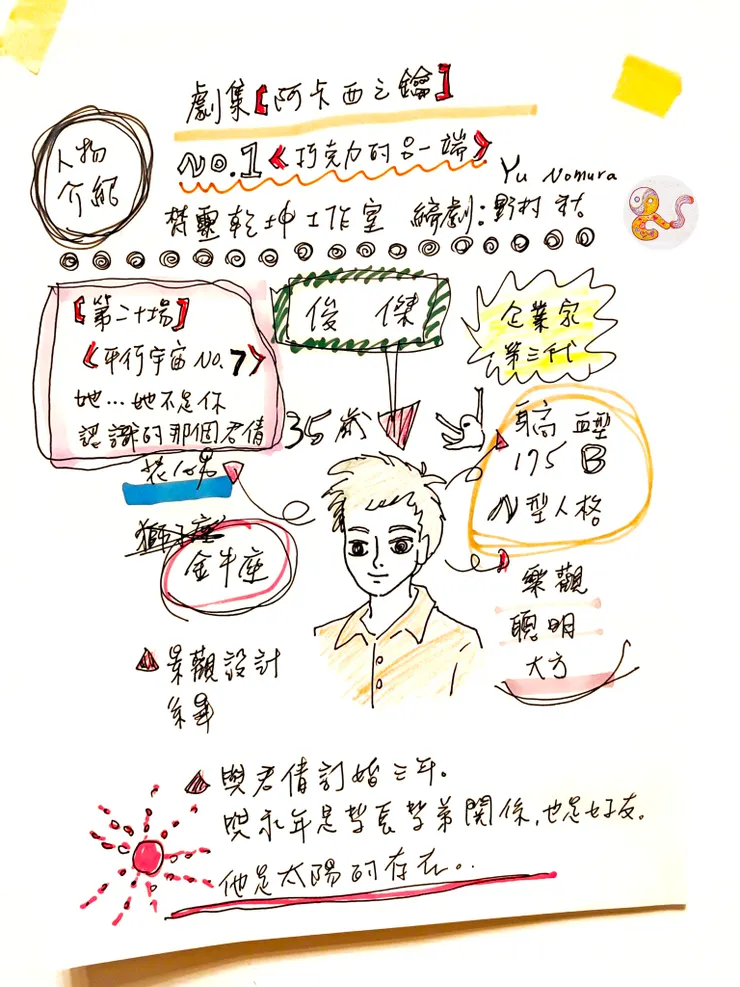 劇集【阿卡西之鑰】
人物
介紹
NO.1《巧克力的另一端》
Yu Nomura
梵靈乾坤工作室 編劇:野村 秋
【第二十場】
《平行宇宙 NO.7》
她…她不是你
認識的那個君倩
俊 傑
企業家
第三代
35歲
身高 血型
175 B
N型人格
花心男
獅子座
金牛座
樂觀
聰明
大方
景觀設計
系畢
與君倩訂婚三年。
與永年是學長學弟關係,也是好友。
他是太陽的存在。